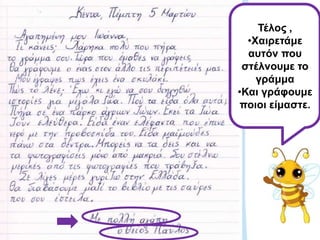 Κένυα, Πέμπτη 5 Μαρτίου
Αγαπημένη μου Ιωάννα,
Τι κάνεις; Χάρηκα πολύ που πήρα
το γράμμα σου. Τώρα που έμαθες να γράφεις
θα γράφουμε ο ένας στον άλλο τις περιπέτειές μας.
Μου έγραψες πως έχεις ένα σκυλάκι.
Πώς το λένε; Έχω κι εγώ να σου διηγηθώ
ιστορίες για μεγάλα ζώα. Πού τα είδα όλα αυτά;
Πήγα σε ένα πάρκο άγριων ζώων. Εκεί τα ζώα
ζουν ελεύθερα. Είδα έναν ελέφαντα που έπινε
νερό με την προβοσκίδα του. Είδα μαϊμούδες
πάνω στα δέντρα. Μπορείς να τα δεις και να
τα φωτογραφίσεις μόνο από μακριά. Σου στέλνω
μερικές από τις φωτογραφίες που τράβηξα.
Σε λίγες μέρες γυρίζω στην Ελλάδα.
Θα διαβάσουμε μαζί το βιβλίο με τις σαύρες
που σου έστειλα.
Με πολλή αγάπη
ο θείος Παύλος
Τέλος ,
•Χαιρετάμε
αυτόν που
στέλνουμε το
γράμμα
•Και γράφουμε
ποιοι είμαστε.